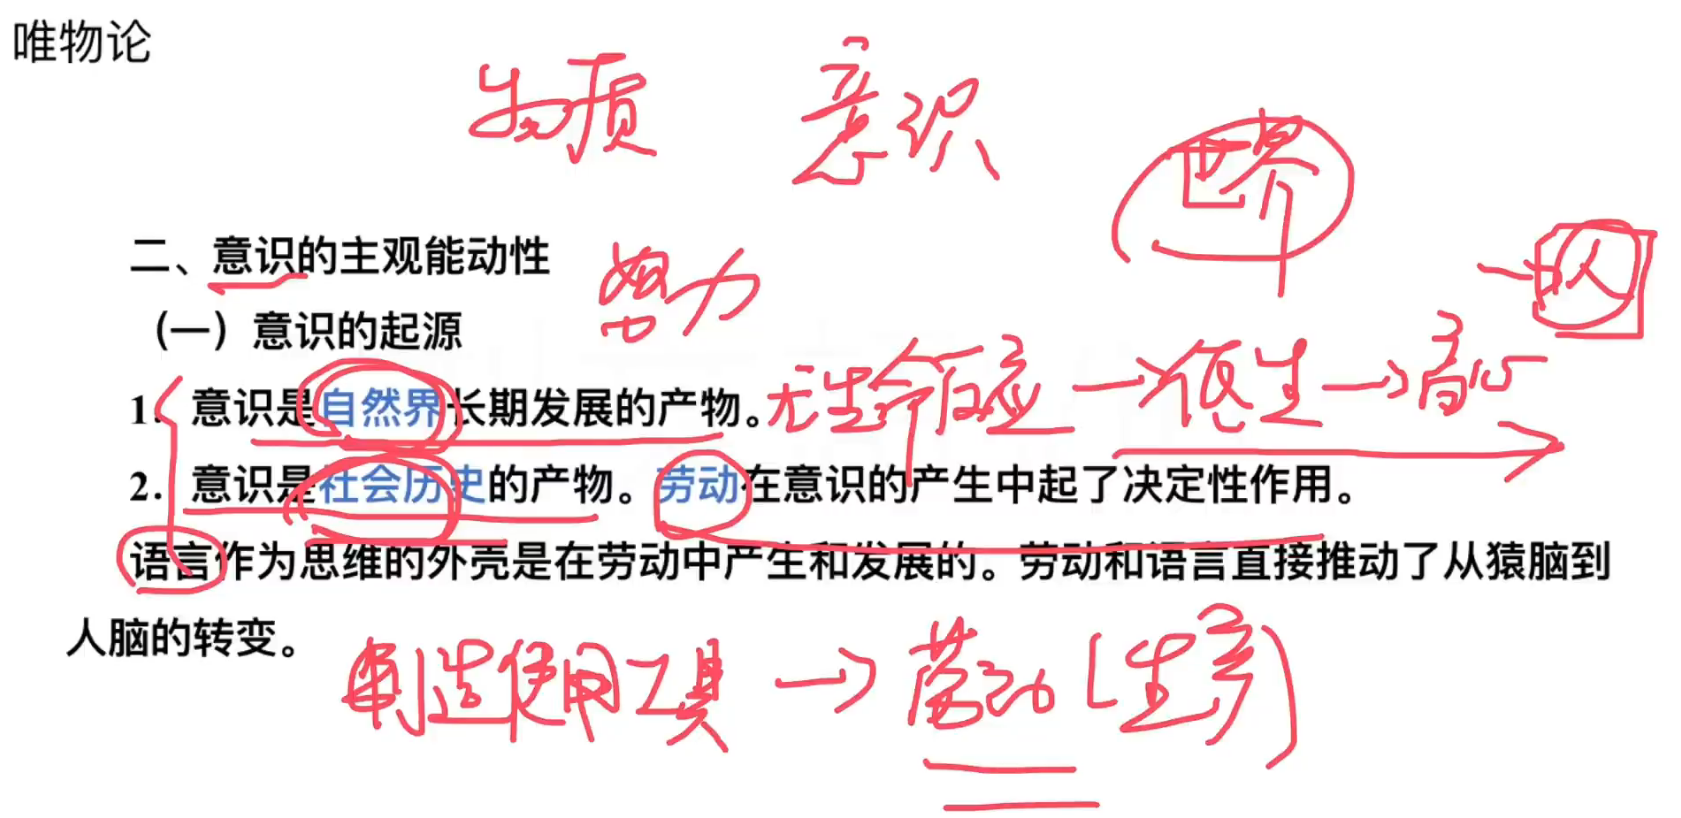 唯物论
物质 意识
世界
二、意识的主观能动性
努力
人
（一）意识的起源
1. 意识是自然界长期发展的产物。
无生命反应→低生→高心
2. 意识是社会历史的产物。劳动在意识的产生中起了决定性作用。
语言作为思维的外壳是在劳动中产生和发展的。劳动和语言直接推动了从猿脑到
人脑的转变。
制造使用工具→劳动(生产)